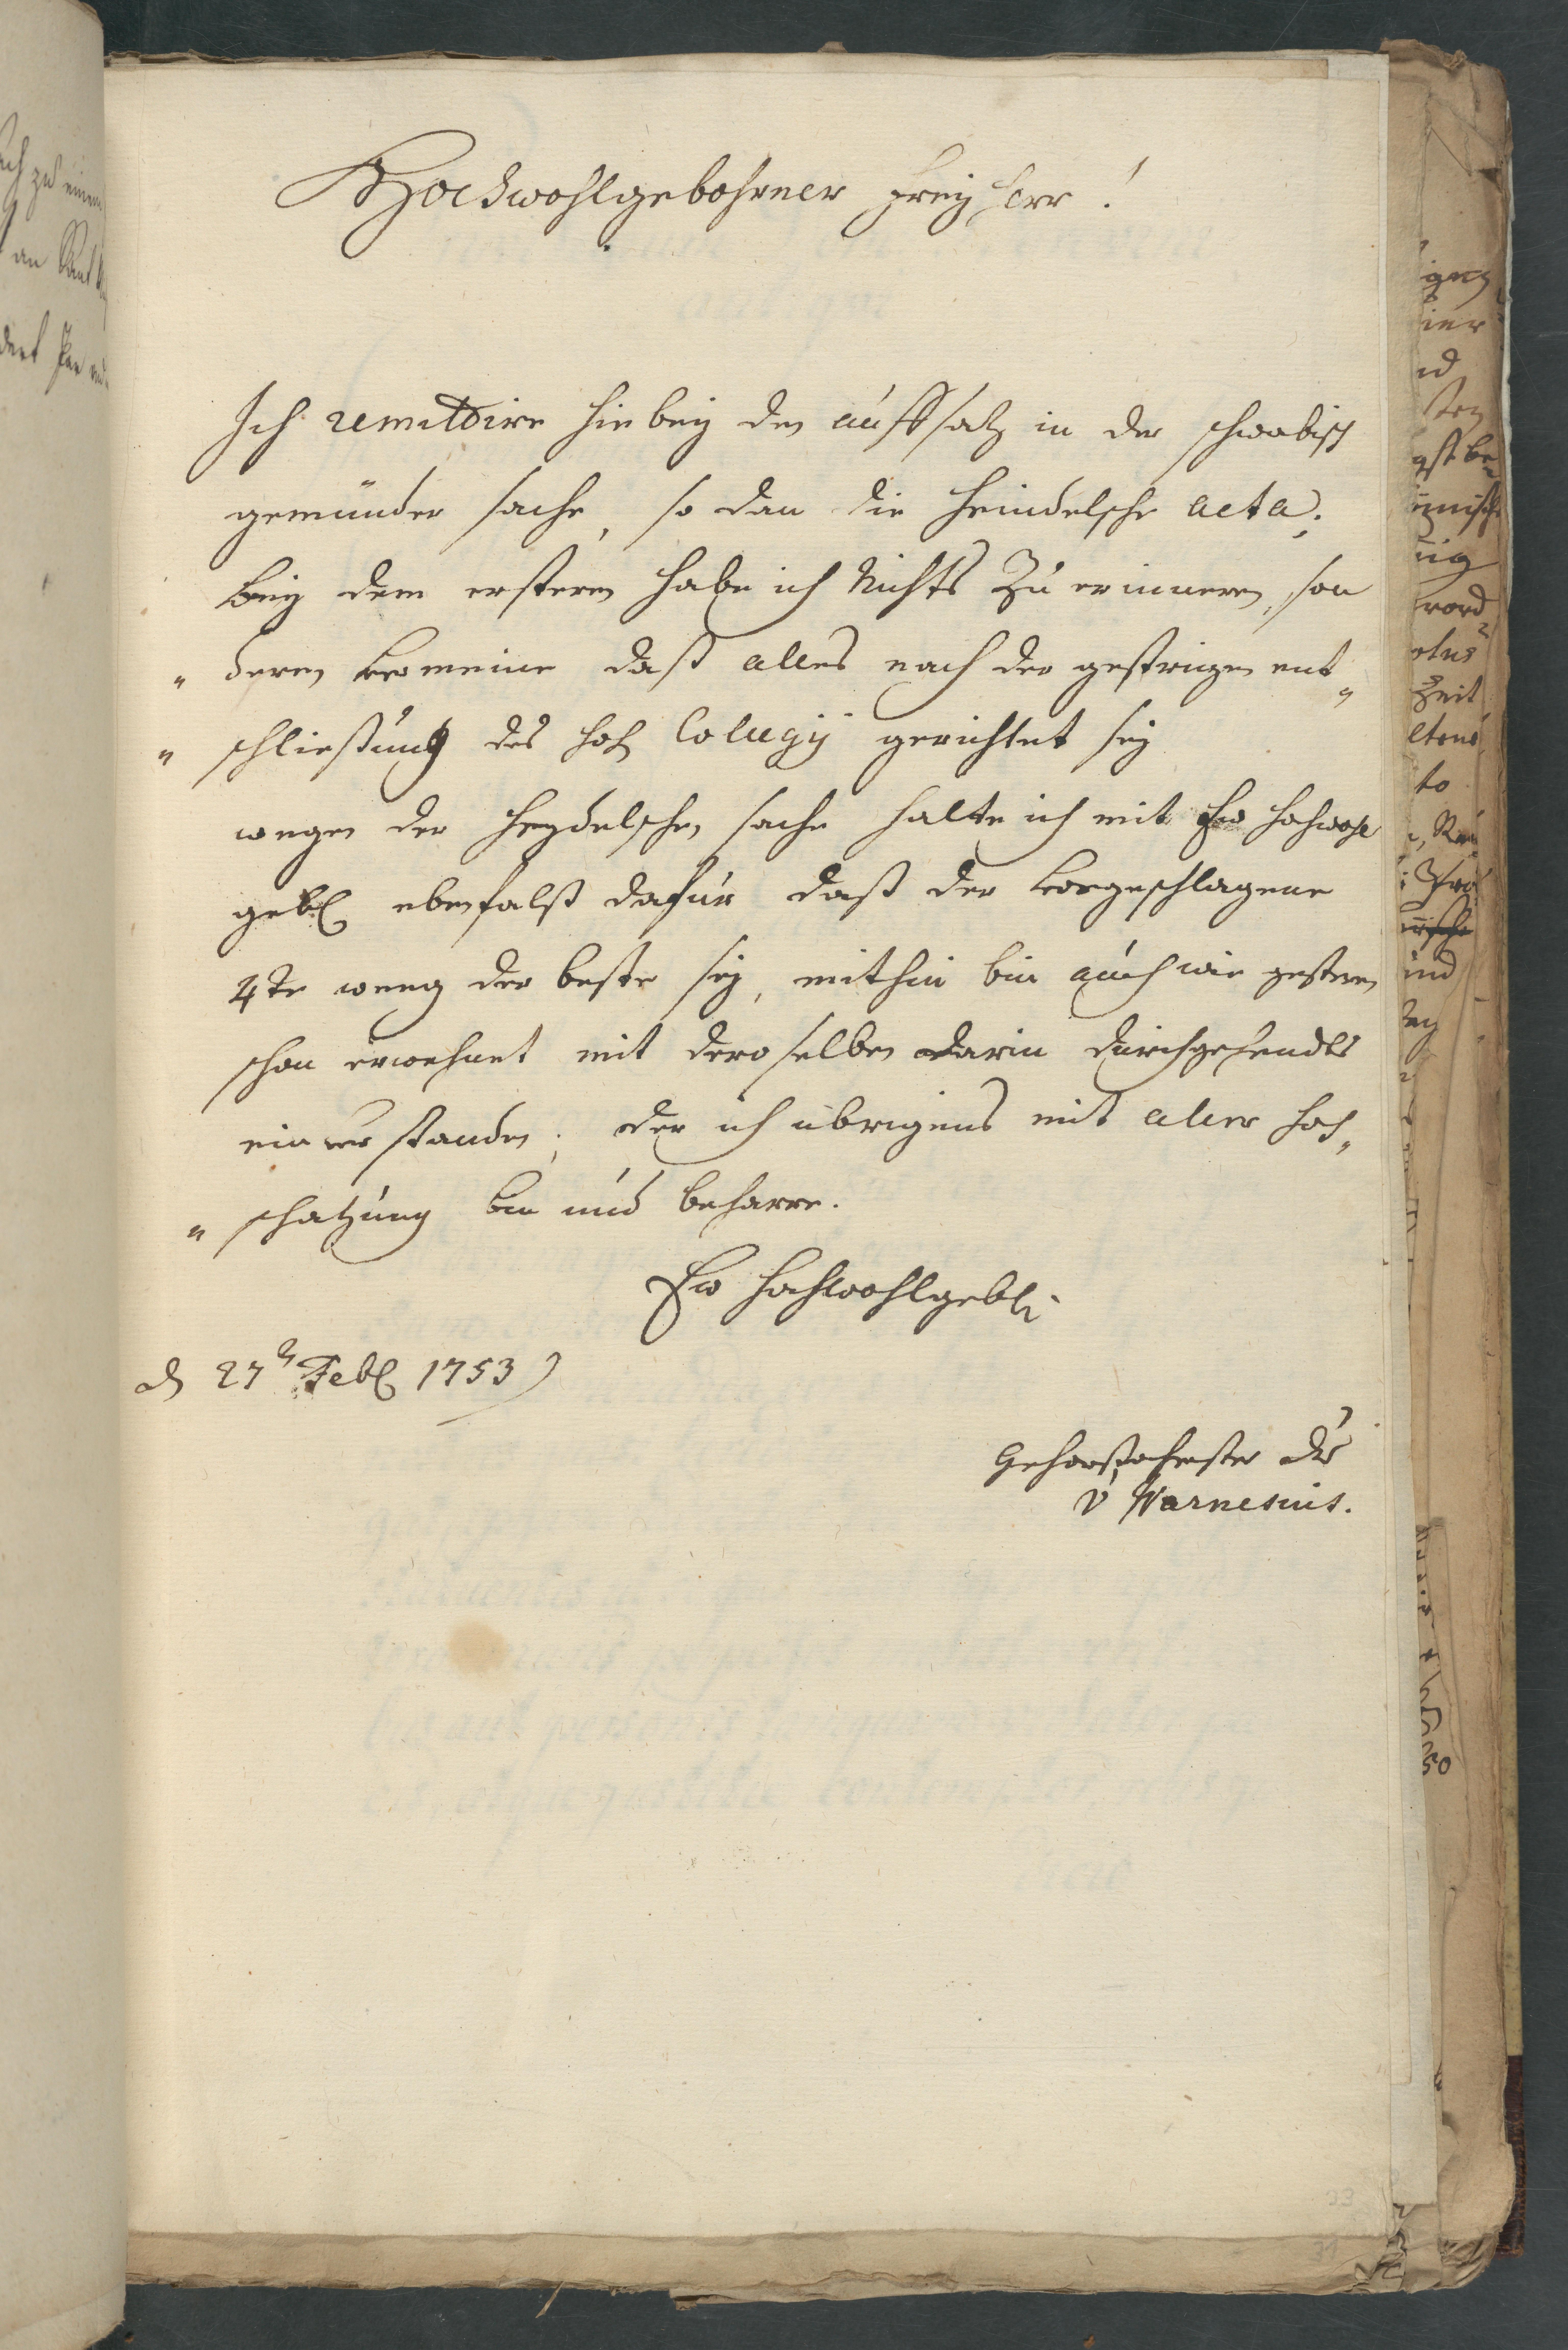 Hochwohlgebohrner Freyherr!
Ich remittire hiebey den auffsatz in der schwabisch
gemünder sache, so dan die Heindelsche acta;
bey dem ersteren habe ich Nichts zu erinneren, son
" deren vermeine daß alles nach der gestrigen ent "
" schließung des hoh Colegij gerichtet sey
wegen der Heydelschen sache halte ich mit Ew Hochwohl
gebl ebenfalß dafür daß der vorgeschlagene
4te weeg der beste sey, mithin bin auch wie gesteren
schon erwehnet mit deroselben darin durchgehendts
einverstanden; der ich übrigens mit aller hoch "
" schatzung bin und beharre.
Ew Hochwohlgebl.
d 27n Febl 1753
Gehorsahmster Dr
v Warnesius.